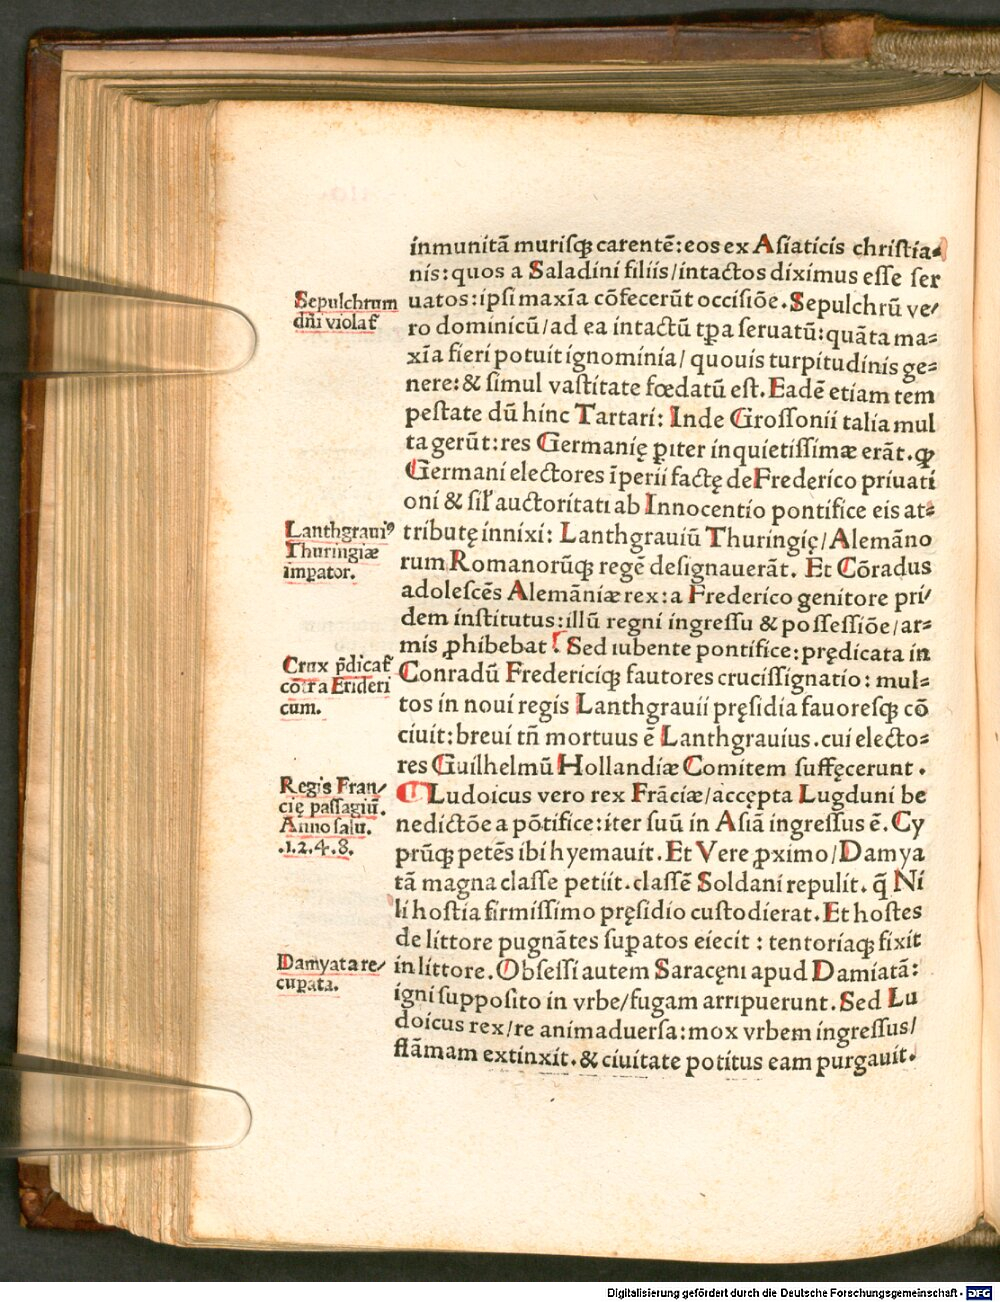 inmunitã muriſqꝫ carentẽ: eos ex Aſiaticis chriſtia⸗
nis: quos a Saladini filiis/intactos diximus eſſe ſer
uatos: ipſi maxĩa cõfecerũt occiſiõe. Sepulchrũ ve/
ro dominicũ/ad ea intactũ tꝑa ſeruatũ: quãta ma⸗
xĩa fieri potuit ignominia/ quouis turpitudinis ge⸗
nere: & ſimul vaſtitate fœdatũ eſt. Eadẽ etiam tem
peſtate dũ hinc Tartari: Inde Groſſonii talia mul
ta gerũt: res Germanię ꝑiter inquietiſſimæ erãt. ꝙ
Germani electores ĩperii factę de Frederico priuati
oni & ſiĺ auctoritati ab Innocentio pontifice eis at⸗
tributę innixi: Lanthgrauiũ Thuringię/Alemãno
rum Romanorũqꝫ regẽ deſignauerãt. Et Cõradus
adoleſcẽs Alemãniæ rex: a Frederico genitore pri/
dem inſtitutus: illũ regni ingreſſu & poſſeſſiõe/ar⸗
mis ꝓhibebat. Sed iubente pontifice: prędicata in
Conradũ Fredericiqꝫ fautores cruciſſignatio: mul⸗
tos in noui regis Lanthgrauii pręſidia fauoreſqꝫ cõ
ciuit: breui tñ mortuus ẽ Lanthgrauius. cui electo⸗
res Guilhelmũ Hollandiæ Comitem ſuffęcerunt.
Ludoicus vero rex Frãciæ/accępta Lugduni be
nedictõe a põtifice: iter ſuũ in Aſiã ingreſſus ẽ. Cy
prũqꝫ petẽs ibi hyemauit. Et Vere ꝓximo/Damya
tã magna claſſe petiit. claſſẽ Soldani repulit. q̃ Ni
li hoſtia firmiſſimo pręſidio cuſtodierat. Et hoſtes
de littore pugnãtes ſuꝑatos eiecit: tentoriaqꝫ fixit
in littore. Obſeſſi autem Saracęni apud Damiatã:
igni ſuppoſito in vrbe/fugam arripuerunt. Sed Lu
doicus rex/re animaduerſa: mox vrbem ingreſſus/
flãmam extinxit. & ciuitate potitus eam purgauit.
Sepulchrum
dñi violat̃
Lanthgrauiꝰ
Thuringiæ
impator.
Crux p̃dicat̃
cõtra Frideri
cum.
Regis Fran/
cię paſſagiũ.
Anno ſalu.
.1.2.4.8.
Damyata re/
cuꝑata.
Digitalisierung gefördert durch die Deutsche Forschungsgemeinschaft - DFG